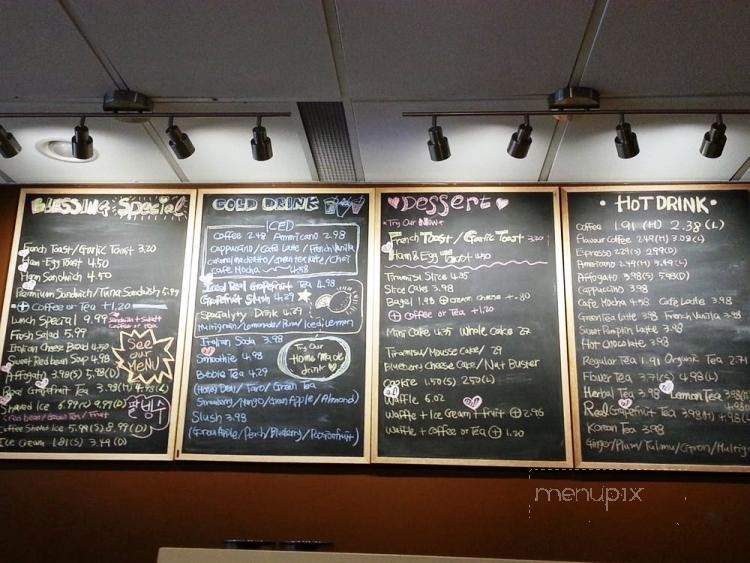 BLESSING Special
French Toast/Garlic Toast 3.20
Ham Egg Toast 4.50
Ham Sandwich 4.50
Premium Sandwich/Tuna Sandwich 5.99
⊕ Coffee or Tea +1.20
Lunch Special 9.99
Sandwich + Salad +
Coffee or Tea
Fresh Salad 5.99
Italian Cheese Bowl 4.50
Sweet Red bean Soup 4.98
Affogato 3.98(S) 5.98(D)
Real Grapefruit Tea 3.98(H) 4.98(L)
Shaved Ice 6.99(S) 9.99(D)
Red bean/Green Tea/Fruit
Coffee Shaved Ice 5.99(S) 8.99(D)
Ice Cream 1.81(S) 3.49(D)
See
our
MeNU
팥빙수
COLD DRINK
ICED
Coffee 2.48 Americano 2.98
Cappuccino/Cafe Latte/French Vanilla
Caramel macchiato/Green tea latte/Chai
Cafe Mocha 4.58
Iced Real Grapefruit Tea 4.98
Grapefruit Slush 4.29
Speciality Drink 4.29
Multigrain/Lemonade/Plum/Iced Lemon
Italian Soda 3.98
Smoothie 4.98
Bubble Tea 4.29
(Honey Dew/Taro/Green Tea
Strawberry/Mango/Green Apple/Almond)
Slush 3.98
(Green Apple/Peach/Blueberry/Passionfruit)
Try Our
Home Made
drink
Dessert
Try Our New
French Toast/Garlic Toast 3.20
Ham & Egg Toast 4.50
Tiramisu Slice 4.35
Slice Cake 3.98
Bagel 1.98 ⊕ cream cheese +.80
⊕ Coffee or Tea +1.20
Mini Cake 4.35 Whole Cake 29
Tiramisu/Mousse Cake/ 29
Blueberry Cheese Cake/Nut Buster
Cookie 1.50(S) 2.50(L)
Waffle 6.02
Waffle + Ice Cream + Fruit ⊕ 2.95
Waffle + Coffee or Tea ⊕ 1.20
HOT DRINK
Coffee 1.91 (M) 2.38 (L)
Flavour Coffee 2.49(M) 3.09(L)
Espresso 2.29(S) 2.99(D)
Americano 2.49(M) 2.99(L)
Affogato 3.98(S) 5.98(D)
Cappuccino 3.98
Cafe Mocha 4.58 Cafe Latte 3.98
Green Tea Latte 3.98 French Vanilla 3.98
Sweet Pumpkin Latte 3.98
Hot Chocolate 3.98
Regular Tea 1.91 Organic Tea 2.71
Flower Tea 3.71(S) 4.98(L)
Herbal Tea 3.98 Lemon Tea 3.98
Real Grapefruit Tea 3.98(M) 4.98(L)
Korean Tea 3.98
Ginger/Plum/Yulmu/Citron/Multigrain
menupix